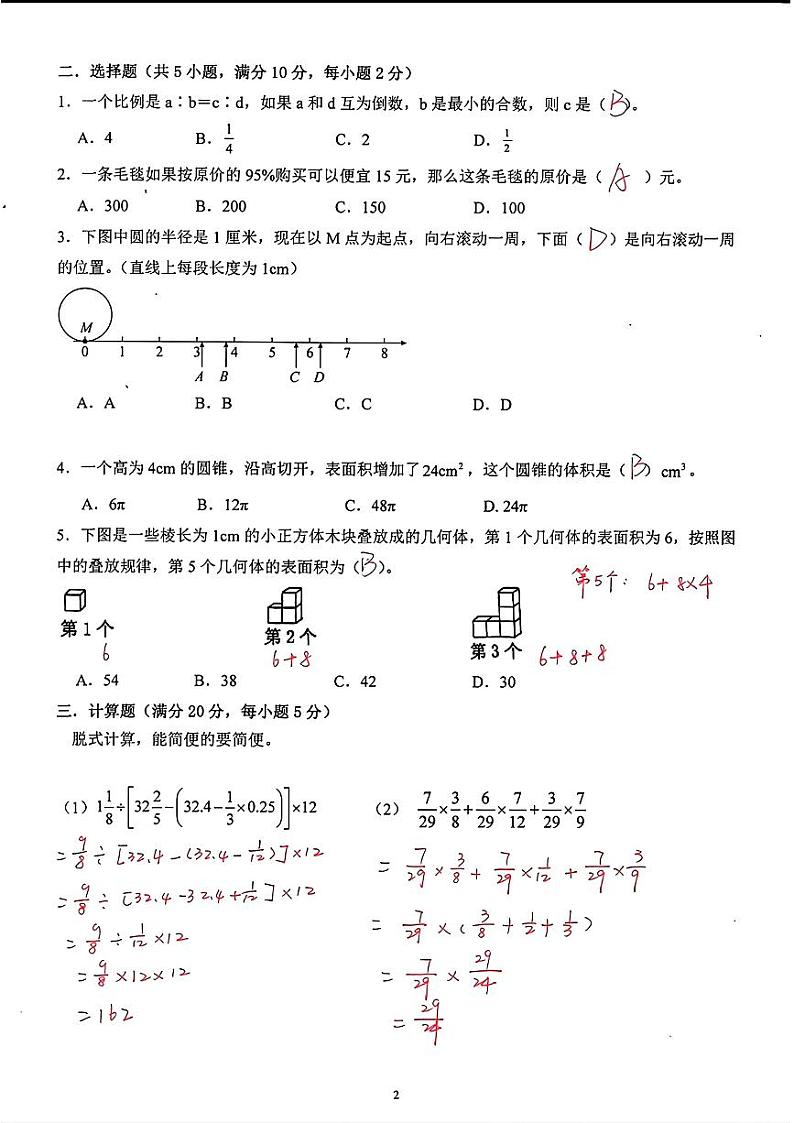 二．选择题（共 5 小题，满分 10 分，每小题 2 分）
1．一个比例是 a∶b＝c∶d，如果 a 和 d 互为倒数，b 是最小的合数，则 c 是（ B ）。
A．4 B．1/4 C．2 D．1/2
2．一条毛毯如果按原价的 95%购买可以便宜 15 元，那么这条毛毯的原价是（ A ）元。
A．300 B．200 C．150 D．100
3．下图中圆的半径是 1 厘米，现在以 M 点为起点，向右滚动一周，下面（ D ）是向右滚动一周
的位置。（直线上每段长度为 1cm）
M
0 1 2 3 4 5 6 7 8
A B C D
A．A B．B C．C D．D
4．一个高为 4cm 的圆锥，沿高切开，表面积增加了 24cm²，这个圆锥的体积是（ B ）cm³。
A．6π B．12π C．48π D. 24π
5．下图是一些棱长为 1cm 的小正方体木块叠放成的几何体，第 1 个几何体的表面积为 6，按照图
中的叠放规律，第 5 个几何体的表面积为（ B ）。
第5个：6+8×4
第 1 个 第 2 个 第 3 个
6 6+8 6+8+8
A．54 B．38 C．42 D．30
三．计算题（满分 20 分，每小题 5 分）
脱式计算，能简便的要简便。
（1）1 1/8÷[32 2/5−(32.4−1/3×0.25)]×12 （2） 7/29×3/8+6/29×7/12+3/29×7/9
=9/8÷[32.4-(32.4-1/12)]×12 =7/29×3/8+7/29×1/12+7/29×3/9
=9/8÷[32.4-32.4+1/12]×12 =7/29×(3/8+1/2+1/3)
=9/8÷1/12×12 =7/29×29/24
=9/8×12×12 =29/24
=162
2